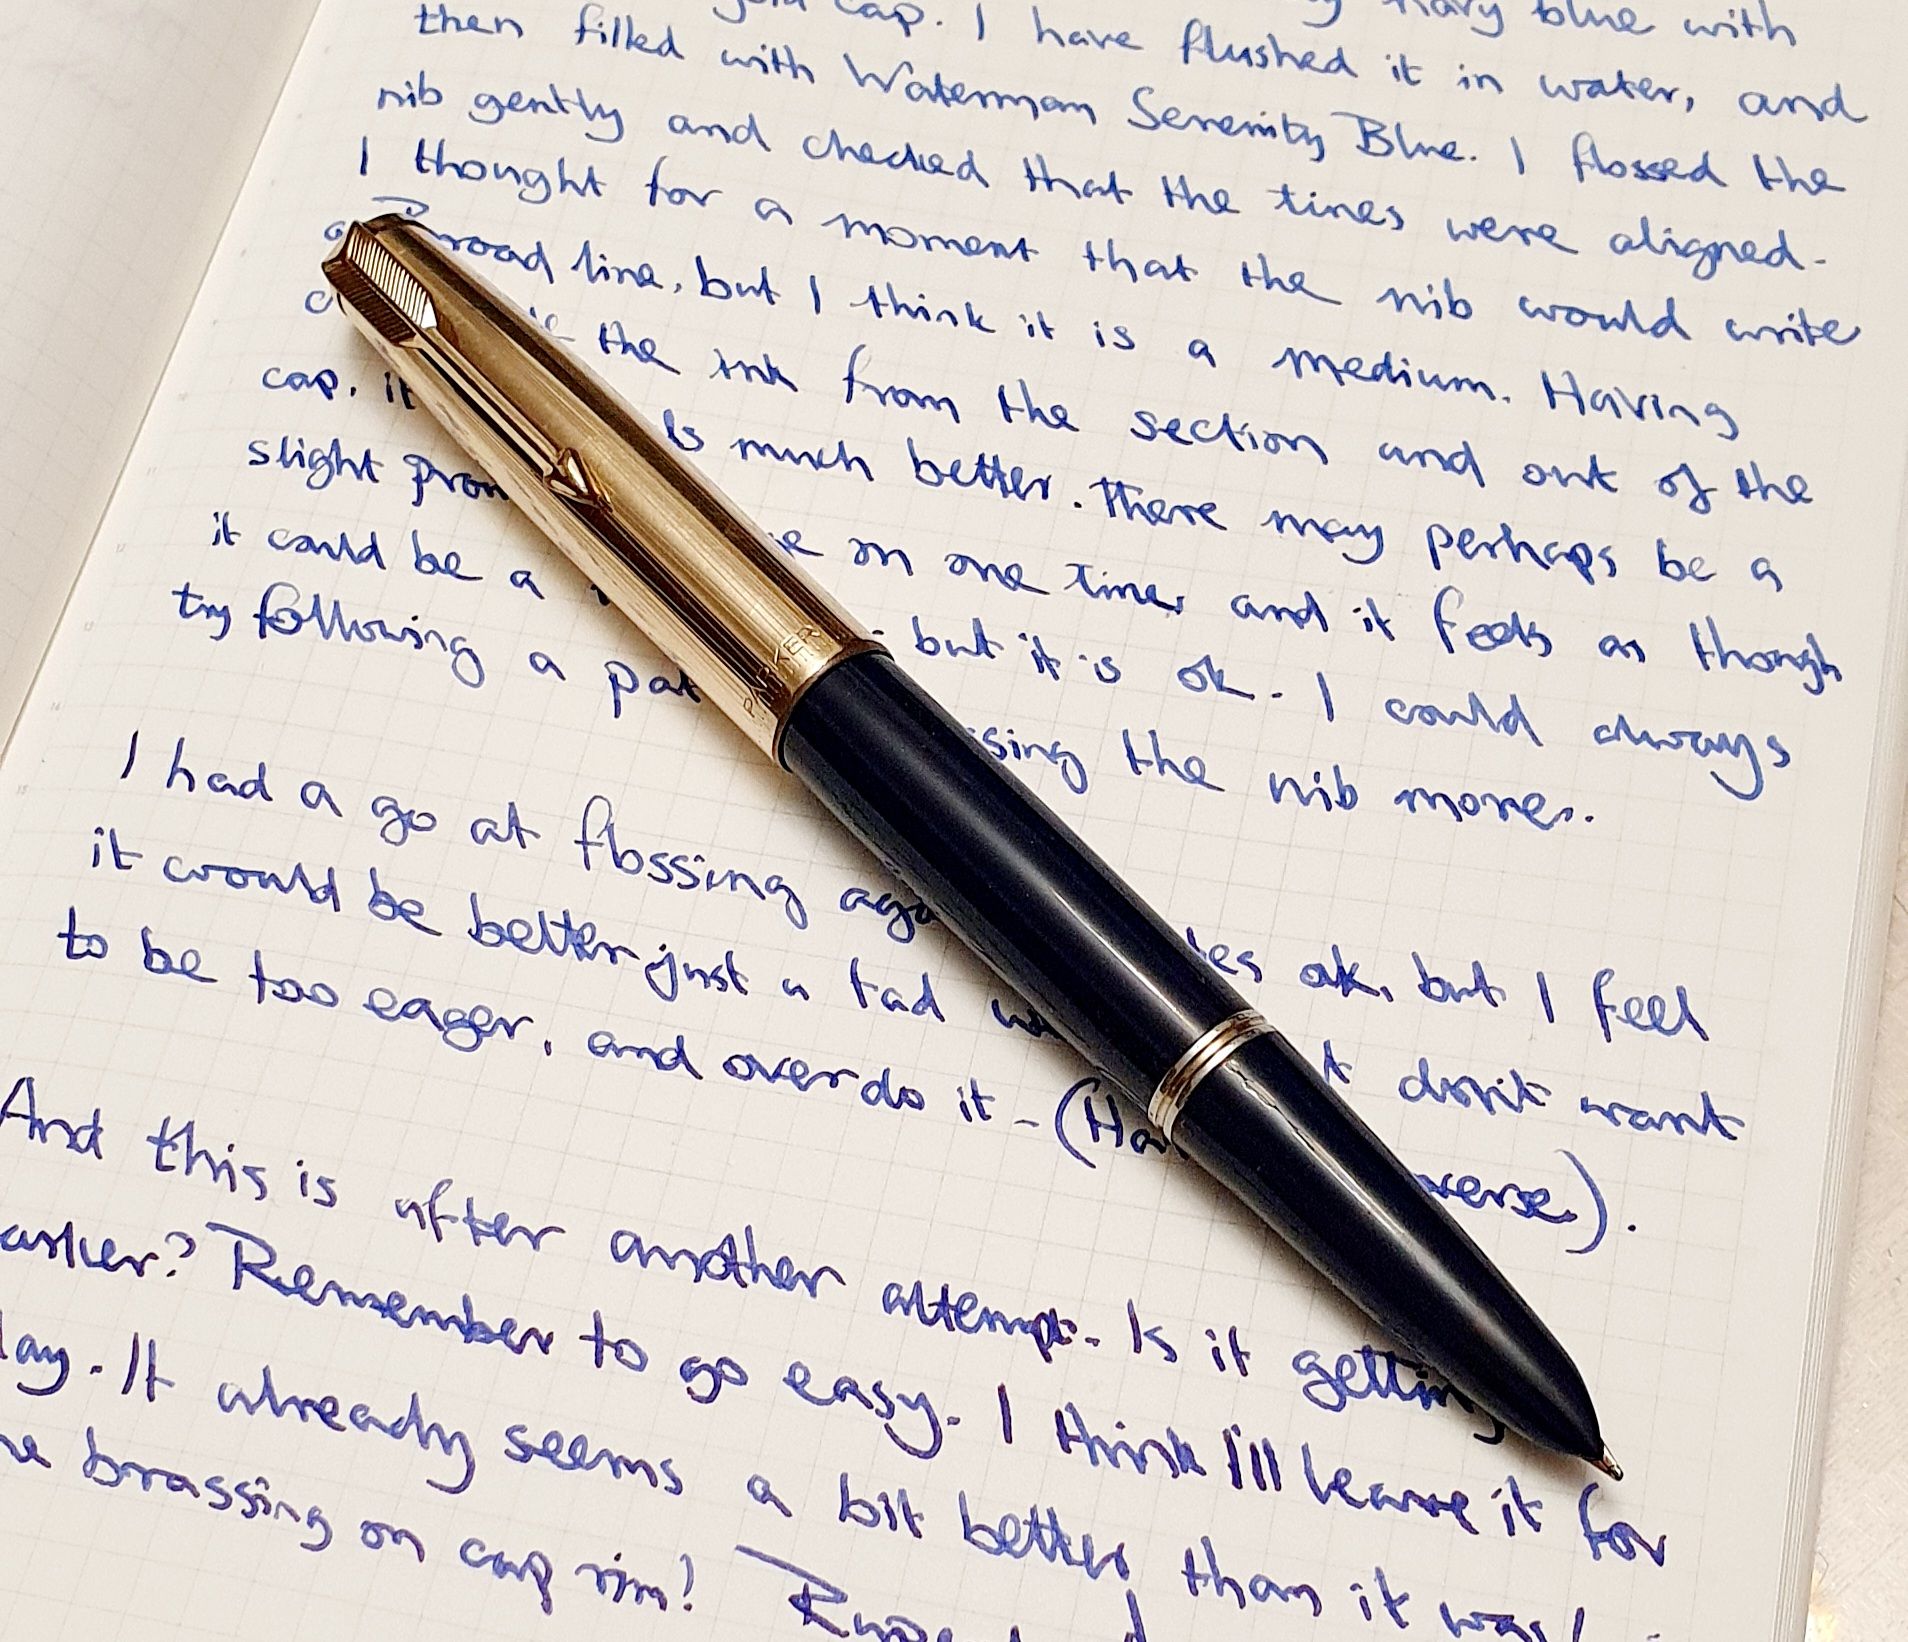 gold cap. I have flushed it in water, and
navy blue with
then filled with Waterman Serenity Blue. I flossed the
nib gently and checked that the tines were aligned.
I thought for a moment that the nib would write
a Broad line, but I think it is a medium. Having
the ink from the section and out of the
cap, it much better. There may perhaps be a
slight on one tine, and it feels as though
it could be a but it is ok. I could always
try following a the nib more.
I had a go at flossing ok, but I feel
it would be better just a tad don't want
to be too eager, and over do it - (
And this is after another attempt. Is it getting
Remember to go easy. I think I'll leave it for
It already seems a bit better than it was!
brassing on cap rim!
PARKER